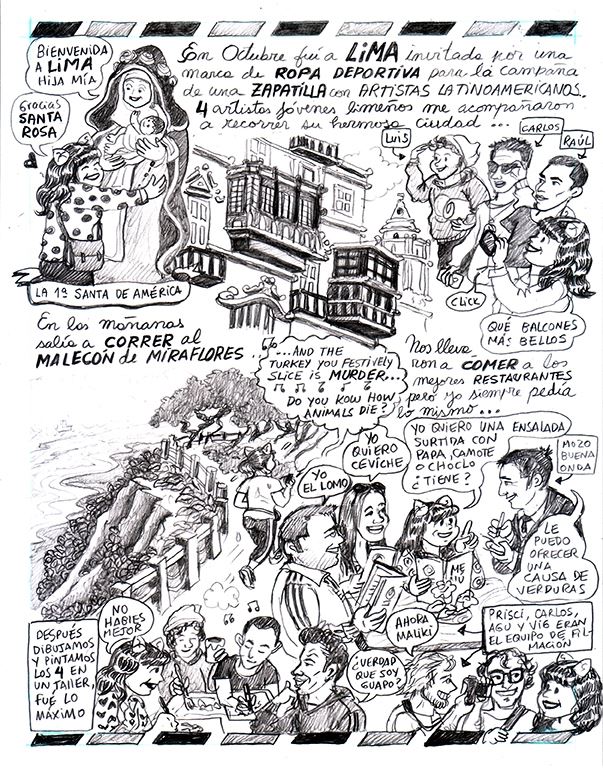 BIENVENIDA
A LiMA
HIJA MÍA
GRACIAS
SANTA
ROSA
En Octubre fuí a LiMA invitada por una
marca de ROPA DEPORTIVA para la campaña
de una ZAPATILLA con ARTISTAS LATINOAMERICANOS.
4 artistas jóvenes limeños me acompañaron
a recorrer su hermosa ciudad ...
LUIS
CARLOS
RAÚL
LA 1ª SANTA DE AMÉRICA
CLICK
QUÉ BALCONES
MÁS BELLOS
En las mañanas
salía a CORRER al
MALECÓN de MIRAFLORES ..
...AND THE
TURKEY YOU FESTIVELY
SLICE IS MURDER...
DO YOU KOW HOW
ANIMALS DIE?
Nos lleva
ron a COMER a los
mejores RESTAURANTES
pero yo siempre pedía
lo mismo...
YO
EL LOMO
YO
QUIERO
CEVICHE
YO QUIERO UNA ENSALADA
SURTIDA CON
PAPA, CAMOTE
O CHOCLO
¿TIENE?
MOZO
BUENA
ONDA
LE
PUEDO
OFRECER
UNA
CAUSA DE
VERDURAS
ME
NU
DESPUÉS
DIBUJAMOS
Y PINTAMOS
LOS 4 EN
UN TALLER,
FUE LO
MÁXIMO
NO
HABLES
MEJOR
¿VERDAD
QUE SOY
GUAPO?
AHORA
MALIKI
PRISCI, CARLOS,
AGU Y VI6 ERAN
EL EQUIPO DE FIL-
MACIÓN